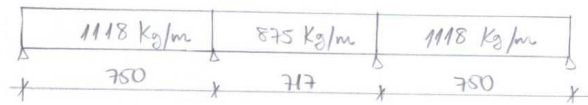 1118 Kg/m 875 Kg/m 1118 Kg/m
750 717 750